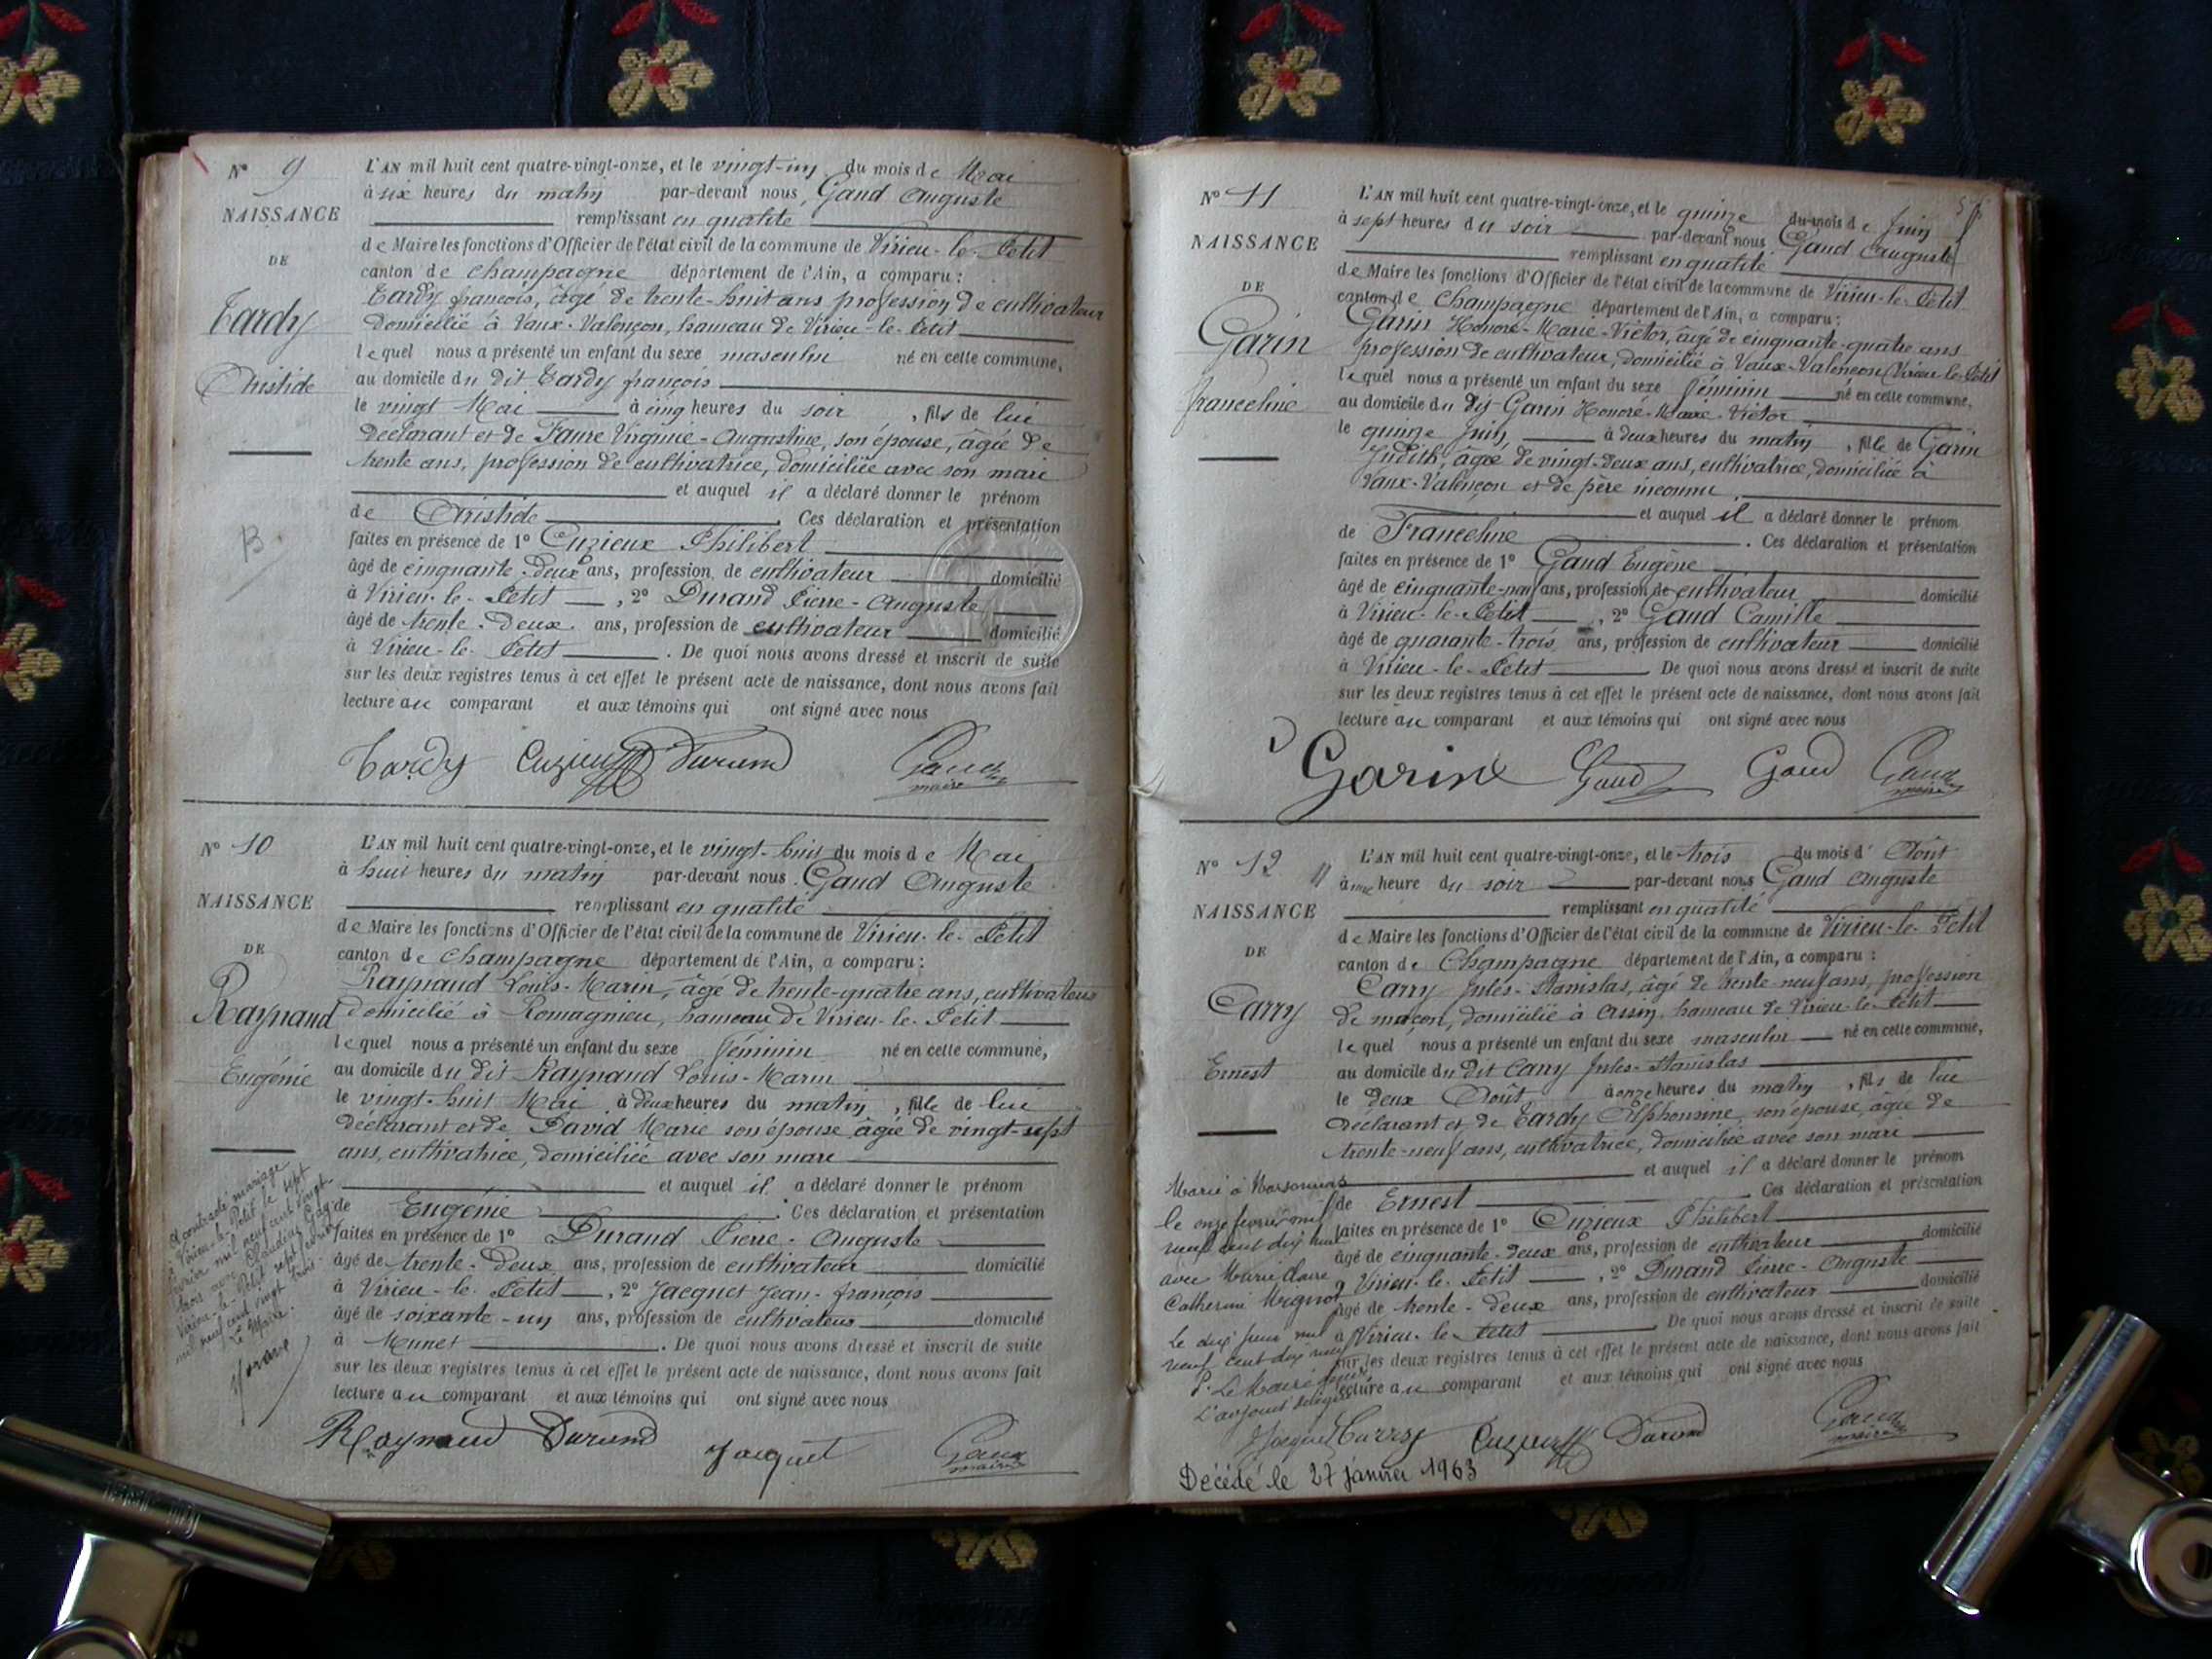 N° 9
NAISSANCE
DE
Tardy
Aristide
B
L'AN mil huit cent quatre-vingt-onze, et le vingt-un du mois de Mai
à six heures du matin par-devant nous, Gaud Auguste
remplissant en qualité
de Maire les fonctions d'Officier de l'état civil de la commune de Virieu-le-Petit
canton de Champagne département de l'Ain, a comparu :
Tardy françois, âgé de trente-huit ans profession de cultivateur
domicilié à Vaux-Valençon, hameau de Virieu-le-Petit
lequel nous a présenté un enfant du sexe masculin né en cette commune,
au domicile du dit Tardy françois
le vingt Mai à cinq heures du soir, fils de lui
déclarant et de Faure Virginie-Augustine, son épouse, âgée de
trente ans, profession de cultivatrice, domiciliée avec son mari
et auquel il a déclaré donner le prénom
de Aristide. Ces déclaration et présentation
faites en présence de 1° Cuzieux Philibert
âgé de cinquante-deux ans, profession de cultivateur domicilié
à Virieu-le-Petit, 2° Durand Pierre-Auguste
âgé de trente-deux ans, profession de cultivateur domicilié
à Virieu-le-Petit. De quoi nous avons dressé et inscrit de suite
sur les deux registres tenus à cet effet le présent acte de naissance, dont nous avons fait
lecture au comparant et aux témoins qui ont signé avec nous
Tardy Cuzieux Durand Gaud
maire
N° 10
NAISSANCE
DE
Raynaud
Eugénie
L'AN mil huit cent quatre-vingt-onze, et le vingt-huit du mois de Mai
à huit heures du matin par-devant nous Gaud Auguste
remplissant en qualité
de Maire les fonctions d'Officier de l'état civil de la commune de Virieu-le-Petit
canton de Champagne département de l'Ain, a comparu :
Raynaud Louis-Marin, âgé de trente-quatre ans, cultivateur
domicilié à Romagnieu, hameau de Virieu-le-Petit
lequel nous a présenté un enfant du sexe féminin né en cette commune,
au domicile du dit Raynaud Louis-Marin
le vingt-huit Mai à deux heures du matin, fille de lui
déclarant et de David Marie son épouse âgée de vingt-sept
ans, cultivatrice, domiciliée avec son mari
et auquel il a déclaré donner le prénom
de Eugénie. Ces déclaration et présentation
faites en présence de 1° Durand Pierre-Auguste
âgé de trente-deux ans, profession de cultivateur domicilié
à Virieu-le-Petit, 2° Jacquet Jean-françois
âgé de soixante-un ans, profession de cultivateur domicilié
à Munet. De quoi nous avons dressé et inscrit de suite
sur les deux registres tenus à cet effet le présent acte de naissance, dont nous avons fait
lecture au comparant et aux témoins qui ont signé avec nous
A contracté mariage
à Virieu-le-Petit le sept
février mil neuf cent vingt-
trois avec Claudius
Virieu-le-Petit sept février
mil neuf cent vingt trois.
Le Maire.
Raynaud Durand Jacquet Gaud
maire
N° 11
NAISSANCE
DE
Garin
franceline
L'AN mil huit cent quatre-vingt-onze, et le quinze du mois de Juin
à sept heures du soir par-devant nous Gaud Auguste
remplissant en qualité
de Maire les fonctions d'Officier de l'état civil de la commune de Virieu-le-Petit
canton de Champagne département de l'Ain, a comparu :
Garin Honoré-Marie-Victor, âgé de cinquante-quatre ans
profession de cultivateur, domicilié à Vaux-Valençon (Virieu-le-Petit
lequel nous a présenté un enfant du sexe féminin né en cette commune,
au domicile du dit Garin Honoré-Marie-Victor
le quinze Juin à deux heures du matin, fille de Garin
Judith, âgée de vingt-deux ans, cultivatrice, domiciliée à
Vaux-Valençon et de père inconnu
et auquel il a déclaré donner le prénom
de Franceline. Ces déclaration et présentation
faites en présence de 1° Gaud Eugène
âgé de cinquante-neuf ans, profession de cultivateur domicilié
à Virieu-le-Petit, 2° Gaud Camille
âgé de quarante-trois ans, profession de cultivateur domicilié
à Virieu-le-Petit. De quoi nous avons dressé et inscrit de suite
sur les deux registres tenus à cet effet le présent acte de naissance, dont nous avons fait
lecture au comparant et aux témoins qui ont signé avec nous
Garin Gaud Gaud Gaud
maire
N° 12
NAISSANCE
DE
Carry
Ernest
L'AN mil huit cent quatre-vingt-onze, et le trois du mois d'Août
à une heure du soir par-devant nous Gaud Auguste
remplissant en qualité
de Maire les fonctions d'Officier de l'état civil de la commune de Virieu-le-Petit
canton de Champagne département de l'Ain, a comparu :
Carry Jules-Stanislas, âgé de trente-neuf ans, profession
de maçon, domicilié à Assin hameau de Virieu-le-Petit
lequel nous a présenté un enfant du sexe masculin né en cette commune,
au domicile du dit Carry Jules-Stanislas
le deux Août à onze heures du matin, fils de lui
déclarant et de Tardy Alphonsine, son épouse, âgée de
trente-neuf ans, cultivatrice, domiciliée avec son mari
et auquel il a déclaré donner le prénom
de Ernest. Ces déclaration et présentation
faites en présence de 1° Cuzieux Philibert
âgé de cinquante-deux ans, profession de cultivateur domicilié
à Virieu-le-Petit, 2° Durand Pierre-Auguste
âgé de trente-deux ans, profession de cultivateur domicilié
à Virieu-le-Petit. De quoi nous avons dressé et inscrit de suite
sur les deux registres tenus à cet effet le présent acte de naissance, dont nous avons fait
lecture au comparant et aux témoins qui ont signé avec nous
Marié à
le onze février mil
neuf cent dix neuf
avec Marie Claire
Catherine Mignot
Le dix juin mil
neuf cent dix neuf
P. Le Maire
L'adjoint délégué
Jacquet
Carry Cuzieux Durand Gaud
maire
Décédé le 27 janvier 1963